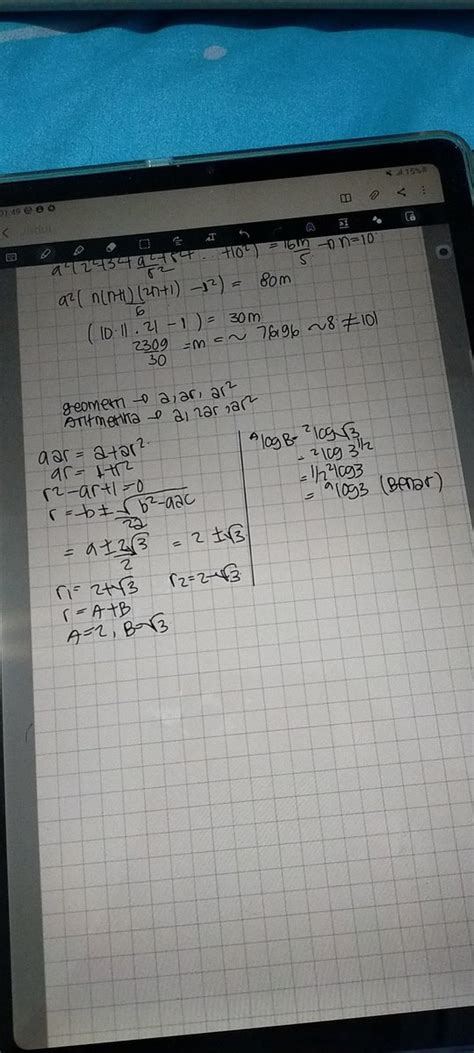 15%
a²(n(n+1)(2n+1)/6 - 1²) = 80m
(10·11·21 - 1) = 30m
2309/30 = m = ~ 76,96 ~ 8 ≠ 101
geometri → a, ar, ar²
Aritmetika → a, 2ar, ar²
aar = a+ar²
ar = 1+r²
r²-ar+1=0
r = -b ± √b²-aac/2a
= a±2√3/2 = 2±√3
r1 = 2+√3 r2 = 2-√3
r = A+B
A=2, B=√3
ᴬlogB = ²log√3
= ²log 3^1/2
= 1/2 ²log3
= ᵃlog3 (Benar)